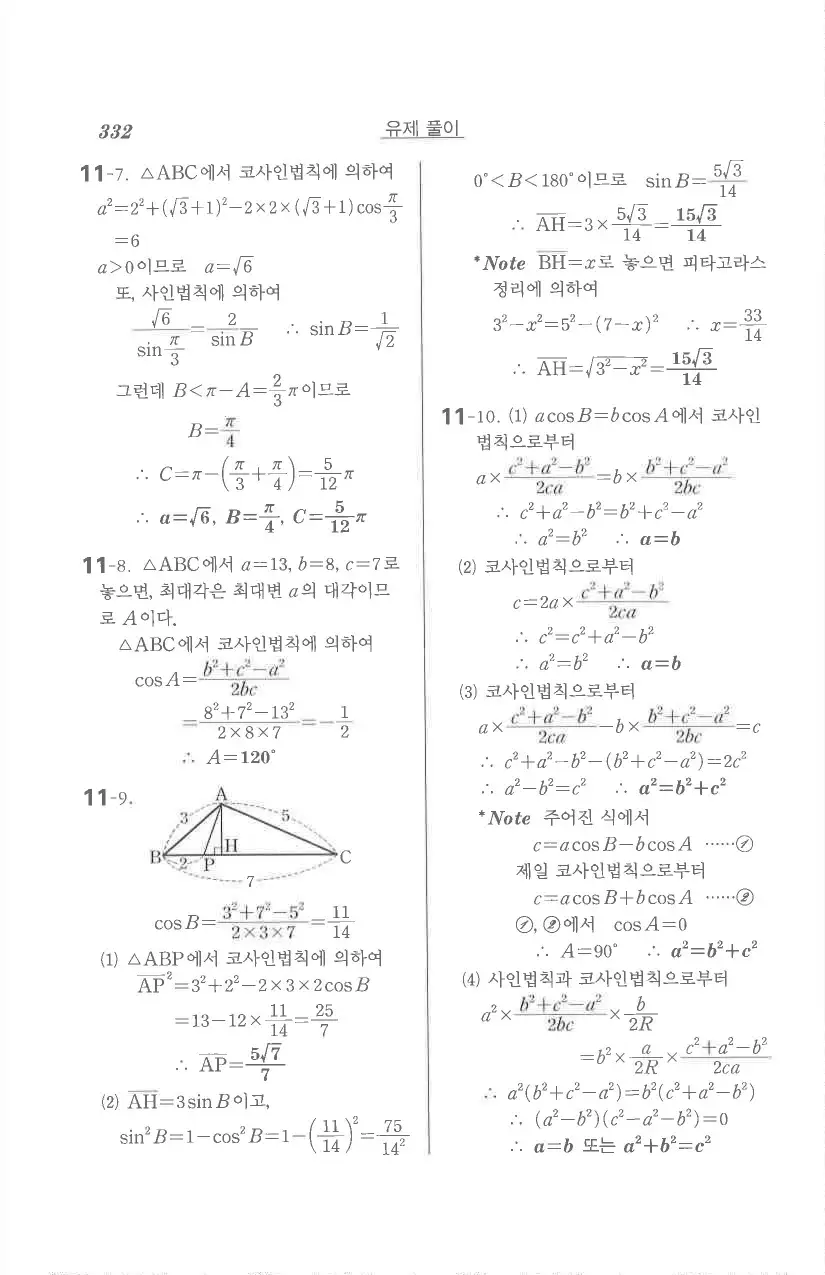 332
유제 풀이
11-7. △ABC에서 코사인법칙에 의하여
a²=2²+(√3+1)²-2×2×(√3+1)cos π/3
=6
a>0이므로 a=√6
또, 사인법칙에 의하여
√6/(sin π/3)=2/(sin B) ∴ sin B=1/√2
그런데 B<π-A=2/3 π이므로
B=π/4
∴ C=π-(π/3+π/4)=5/12 π
∴ a=√6, B=π/4, C=5/12 π
11-8. △ABC에서 a=13, b=8, c=7로
놓으면, 최대각은 최대변 a의 대각이므
로 A이다.
△ABC에서 코사인법칙에 의하여
cos A=(b²+c²-a²)/2bc
=(8²+7²-13²)/(2×8×7)=-1/2
∴ A=120°
11-9.
A
3 5
H
B 2 P C
7
cos B=(3²+7²-5²)/(2×3×7)=11/14
(1) △ABP에서 코사인법칙에 의하여
A̅P̅²=3²+2²-2×3×2cos B
=13-12×11/14=25/7
∴ A̅P̅=5√7/7
(2) A̅H̅=3sin B이고,
sin²B=1-cos²B=1-(11/14)²=75/14²
0°<B<180°이므로 sin B=5√3/14
∴ A̅H̅=3×5√3/14=15√3/14
*Note B̅H̅=x로 놓으면 피타고라스
정리에 의하여
3²-x²=5²-(7-x)² ∴ x=33/14
∴ A̅H̅=√(3²-x²)=15√3/14
11-10. (1) a cos B=b cos A에서 코사인
법칙으로부터
a×(c²+a²-b²)/2ca=b×(b²+c²-a²)/2bc
∴ c²+a²-b²=b²+c²-a²
∴ a²=b² ∴ a=b
(2) 코사인법칙으로부터
c=2a×(c²+a²-b²)/2ca
∴ c²=c²+a²-b²
∴ a²=b² ∴ a=b
(3) 코사인법칙으로부터
a×(c²+a²-b²)/2ca-b×(b²+c²-a²)/2bc=c
∴ c²+a²-b²-(b²+c²-a²)=2c²
∴ a²-b²=c² ∴ a²=b²+c²
*Note 주어진 식에서
c=a cos B-b cos A ……①
제일 코사인법칙으로부터
c=a cos B+b cos A ……②
①, ②에서 cos A=0
∴ A=90° ∴ a²=b²+c²
(4) 사인법칙과 코사인법칙으로부터
a²×(b²+c²-a²)/2bc×b/2R
=b²×a/2R×(c²+a²-b²)/2ca
∴ a²(b²+c²-a²)=b²(c²+a²-b²)
∴ (a²-b²)(c²-a²-b²)=0
∴ a=b 또는 a²+b²=c²